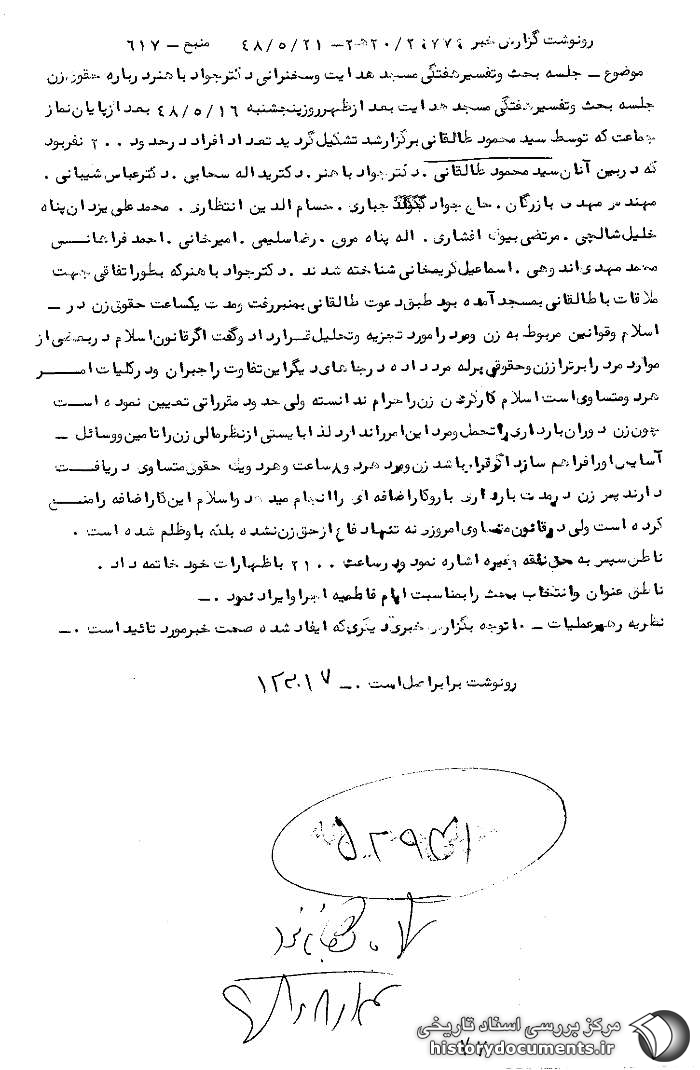 رونوشت گزارش خبر ۲۰/۲۹۷۷۹ هـ ۲ – ۴۸/۵/۲۱ منبع – ۶۱۷
موضوع – جلسه بحث وتفسیر هفتگی مسجد هدایت وسخنرانی دکتر جواد باهنر درباره حقوق زن
جلسه بحث وتفسیر هفتگی مسجد هدایت بعد از ظهر روز پنجشنبه ۴۸/۵/۱۶ بعد از پایان نماز
جماعت که توسط سید محمود طالقانی برگزار شد تشکیل گردید تعداد افراد در حدود ۲۰۰ نفر بود
که در بین آنان سید محمود طالقانی . دکتر جواد باهنر . دکتر یداله سحابی . دکتر عباس شیبانی .
مهندس مهدی بازرگان . حاج جواد جباری . حسام الدین انتظاری . محمد علی یزدان پناه
خلیل شالچی . مرتضی بیوک افشاری . اله پناه مرون . رضا سلیمی . امیرخانی . احمد فراهانی
محمد مهدی اندوهی . اسماعیل کریمخانی شناخته شدند . دکتر جواد باهنر که بطور اتفاقی جهت
ملاقات با طالقانی بمسجد آمده بود طبق دعوت طالقانی بمنبر رفت ومدت یکساعت حقوق زن در –
اسلام وقوانین مربوط به زن ومرد را مورد تجزیه وتحلیل قرار داد وگفت اگر قانون اسلام در بعضی از
موارد مرد را برتر از زن وحقوقی برله مرد داده در جاهای دیگر این تفاوت را جبران ودر کلیات امر
هر دو متساوی است اسلام کار کردن زن را حرام ندانسته ولی حدود مقرراتی تعیین نموده است
چون زن دوران بارداری را تحمل ومرد این امر را ندارد لذا بایستی از نظر مالی زن را تامین ووسائل –
آسایش اورا فراهم سازد اگر قرار باشد زن ومرد هر دو ۸ ساعت وهر دو یک حقوق متساوی دریافت
دارند پس زن در مدت بارداری بار وکار اضافه ای را انجام میدهد واسلام این کار اضافه را منع
کرده است ولی در قانون تساوی امروزی نه تنها دفاع از حق زن نشده بلکه باو ظلم شده است .
ناطق سپس به حق نفقه وغیره اشاره نمود ودر ساعت ۲۱۰۰ باظهارات خود خاتمه داد .
ناطق عنوان وانتخاب بحث را بمناسبت ایام فاطمیه اجرا وایراد نمود .–
نظریه رهبر عملیات – با توجه بگزارش خبری دیگری که ایفاد شده صحت خبر مورد تائید است .–
رونوشت برابر اصل است .–
مرکز بررسی اسناد تاریخی
historydocuments.ir